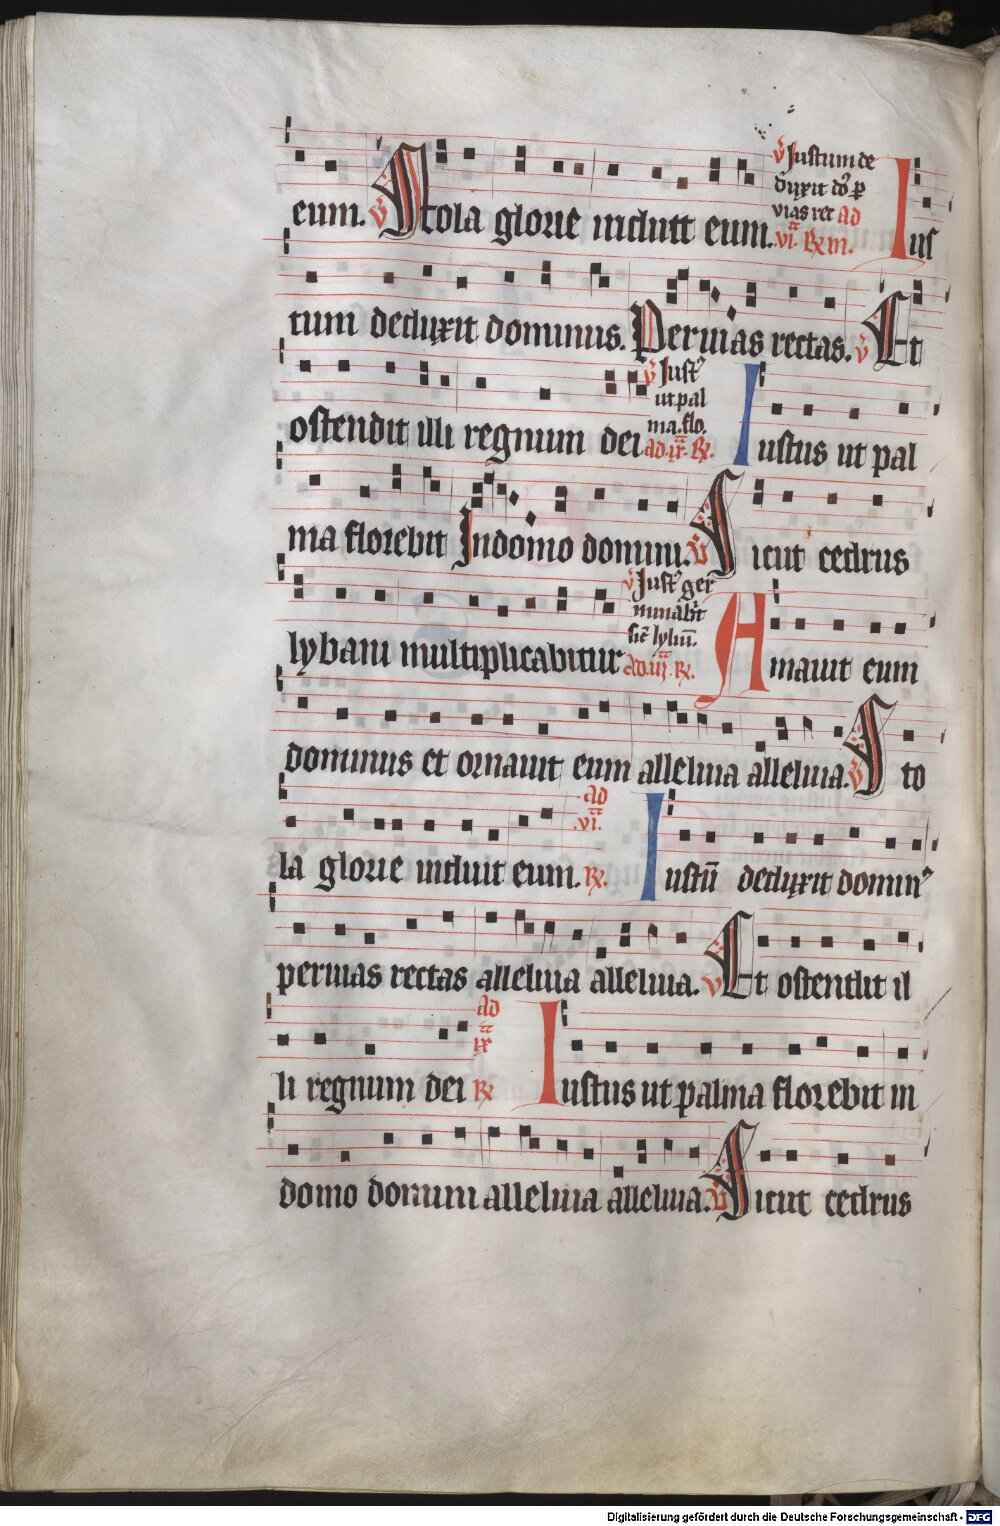 eum. ℣ Stola glorie induit eum. ℣ Justum de
duxit do᷒ p
vias rec ad
vi. ℞m. Jus
tum deduxit dominus. Per vias rectas. ℣ Et
ostendit illi regnum dei ℣ Just᷒
ut pal
ma. flo.
ad. ix. ℞. Iustus ut pal
ma florebit In domo domini. ℣ Sicut cedrus
lybani multiplicabitur ℣ Just᷒ ger
minabit
sic̄ lyliū.
ad. iij. ℞. Amavit eum
dominus et ornavit eum alleluia alleluia. ℣ Sto
la glorie induit eum. ℞. ad
.vi. Iustū deduxit domin᷒
per vias rectas alleluia alleluia. ℣ Et ostendit il
li regnum dei ℞ ad
ix Iustus ut palma florebit in
domo domini alleluia alleluia. ℣ Sicut cedrus
Digitalisierung gefördert durch die Deutsche Forschungsgemeinschaft - DFG